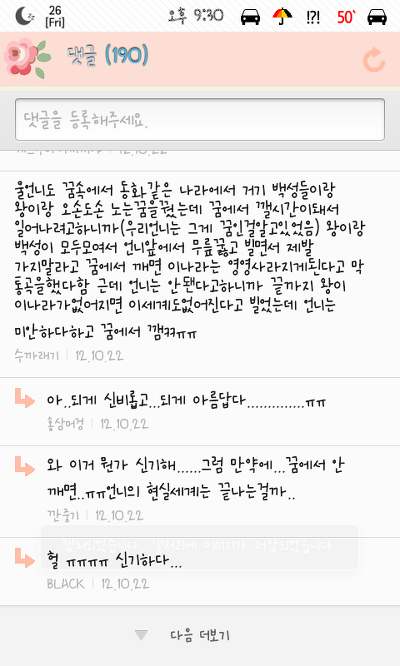 26
[Fri]
오후 9:30
!?!
50`
댓글 (190)
댓글을 등록해주세요.
12.10.22
울언니도 꿈속에서 동화같은 나라에서 거기 백성들이랑
왕이랑 오손도손 노는꿈을꿨는데 꿈에서 깰시간이돼서
일어나려고하니까(우리언니는 그게 꿈인걸알고있었음) 왕이랑
백성이 모두모여서 언니앞에서 무릎꿇고 빌면서 제발
가지말라고 꿈에서 깨면 이나라는 영영사라지게된다고 막
통곡을했다함 근데 언니는 안됀다고하니까 끝까지 왕이
이나라가없어지면 이세계도없어진다고 빌었는데 언니는
미안하다하고 꿈에서 깸ㅋㅋㅠㅠ
수까래기 | 12.10.22
아..되게 신비롭고...되게 아름답다..............ㅠㅠ
홍삼머겅 | 12.10.22
와 이거 뭔가 신기해......그럼 만약에...꿈에서 안
깨면..ㅠㅠ언니의 현실세계는 끝나는걸까..
깐중기 | 12.10.22
헐 ㅠㅠㅠㅠ 신기하다...
BLACK | 12.10.22
다음 더보기